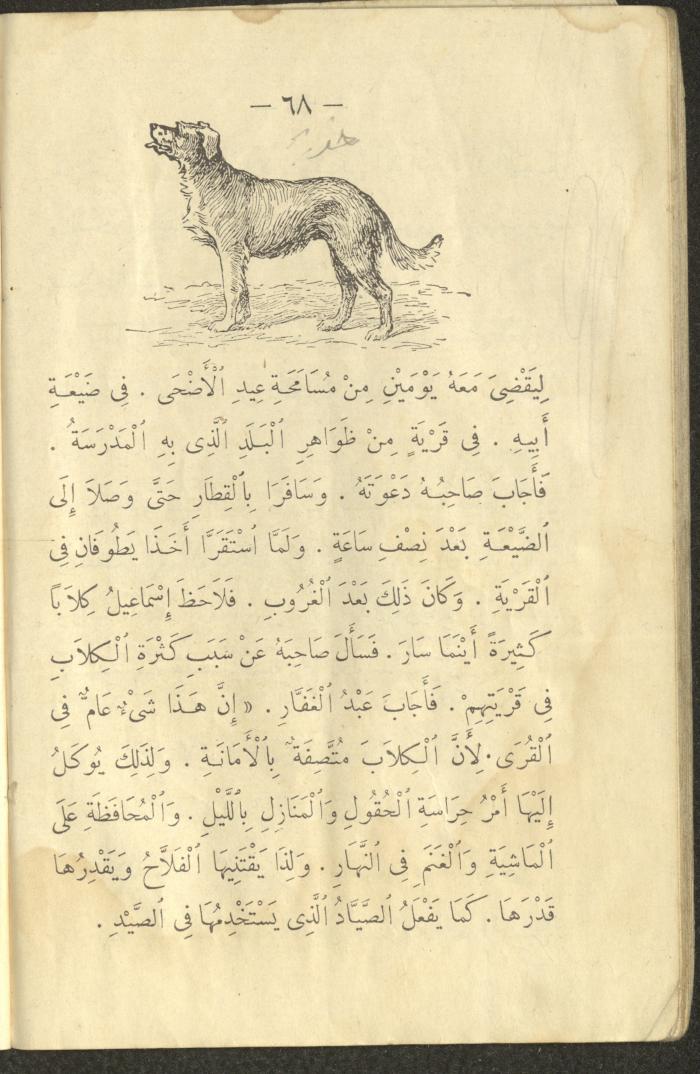 — ٦٨ —
لِيَقْضِىَ مَعَهُ يَوْمَيْنِ مِنْ مُسَامَحَةِ عِيدِ ٱلْأَضْحَى . فِى ضَيْعَةِ
أَبِيهِ . فِى قَرْيَةٍ مِنْ ظَوَاهِرِ ٱلْبَلَدِ ٱلَّذِى بِهِ ٱلْمَدْرَسَةُ .
فَأَجَابَ صَاحِبُهُ دَعْوَتَهُ . وَسَافَرَا بِٱلْقِطَارِ حَتَّى وَصَلَا إِلَى
ٱلضَّيْعَةِ بَعْدَ نِصْفِ سَاعَةٍ . وَلَمَّا ٱسْتَقَرَّا أَخَذَا يَطُوفَانِ فِى
ٱلْقَرْيَةِ . وَكَانَ ذَلِكَ بَعْدَ ٱلْغُرُوبِ . فَلَاحَظَ إِسْمَاعِيلُ كِلَابًا
كَثِيرَةً أَيْنَمَا سَارَ . فَسَأَلَ صَاحِبَهُ عَنْ سَبَبِ كَثْرَةِ ٱلْكِلَابِ
فِى قَرْيَتِهِمْ . فَأَجَابَ عَبْدُ ٱلْغَفَّارِ . « إِنَّ هَذَا شَىْءٌ عَامٌّ فِى
ٱلْقُرَى . لِأَنَّ ٱلْكِلَابَ مُتَّصِفَةٌ بِٱلْأَمَانَةِ . وَلِذَلِكَ يُوكَلُ
إِلَيْهَا أَمْرُ حِرَاسَةِ ٱلْحُقُولِ وَٱلْمَنَازِلِ بِٱللَّيْلِ . وَٱلْمُحَافَظَةِ عَلَى
ٱلْمَاشِيَةِ وَٱلْغَنَمِ فِى ٱلنَّهَارِ . وَلِذَا يَقْتَنِيهَا ٱلْفَلَّاحُ وَيَقْدِرُهَا
قَدْرَهَا . كَمَا يَفْعَلُ ٱلصَّيَّادُ ٱلَّذِى يَسْتَخْدِمُهَا فِى ٱلصَّيْدِ .